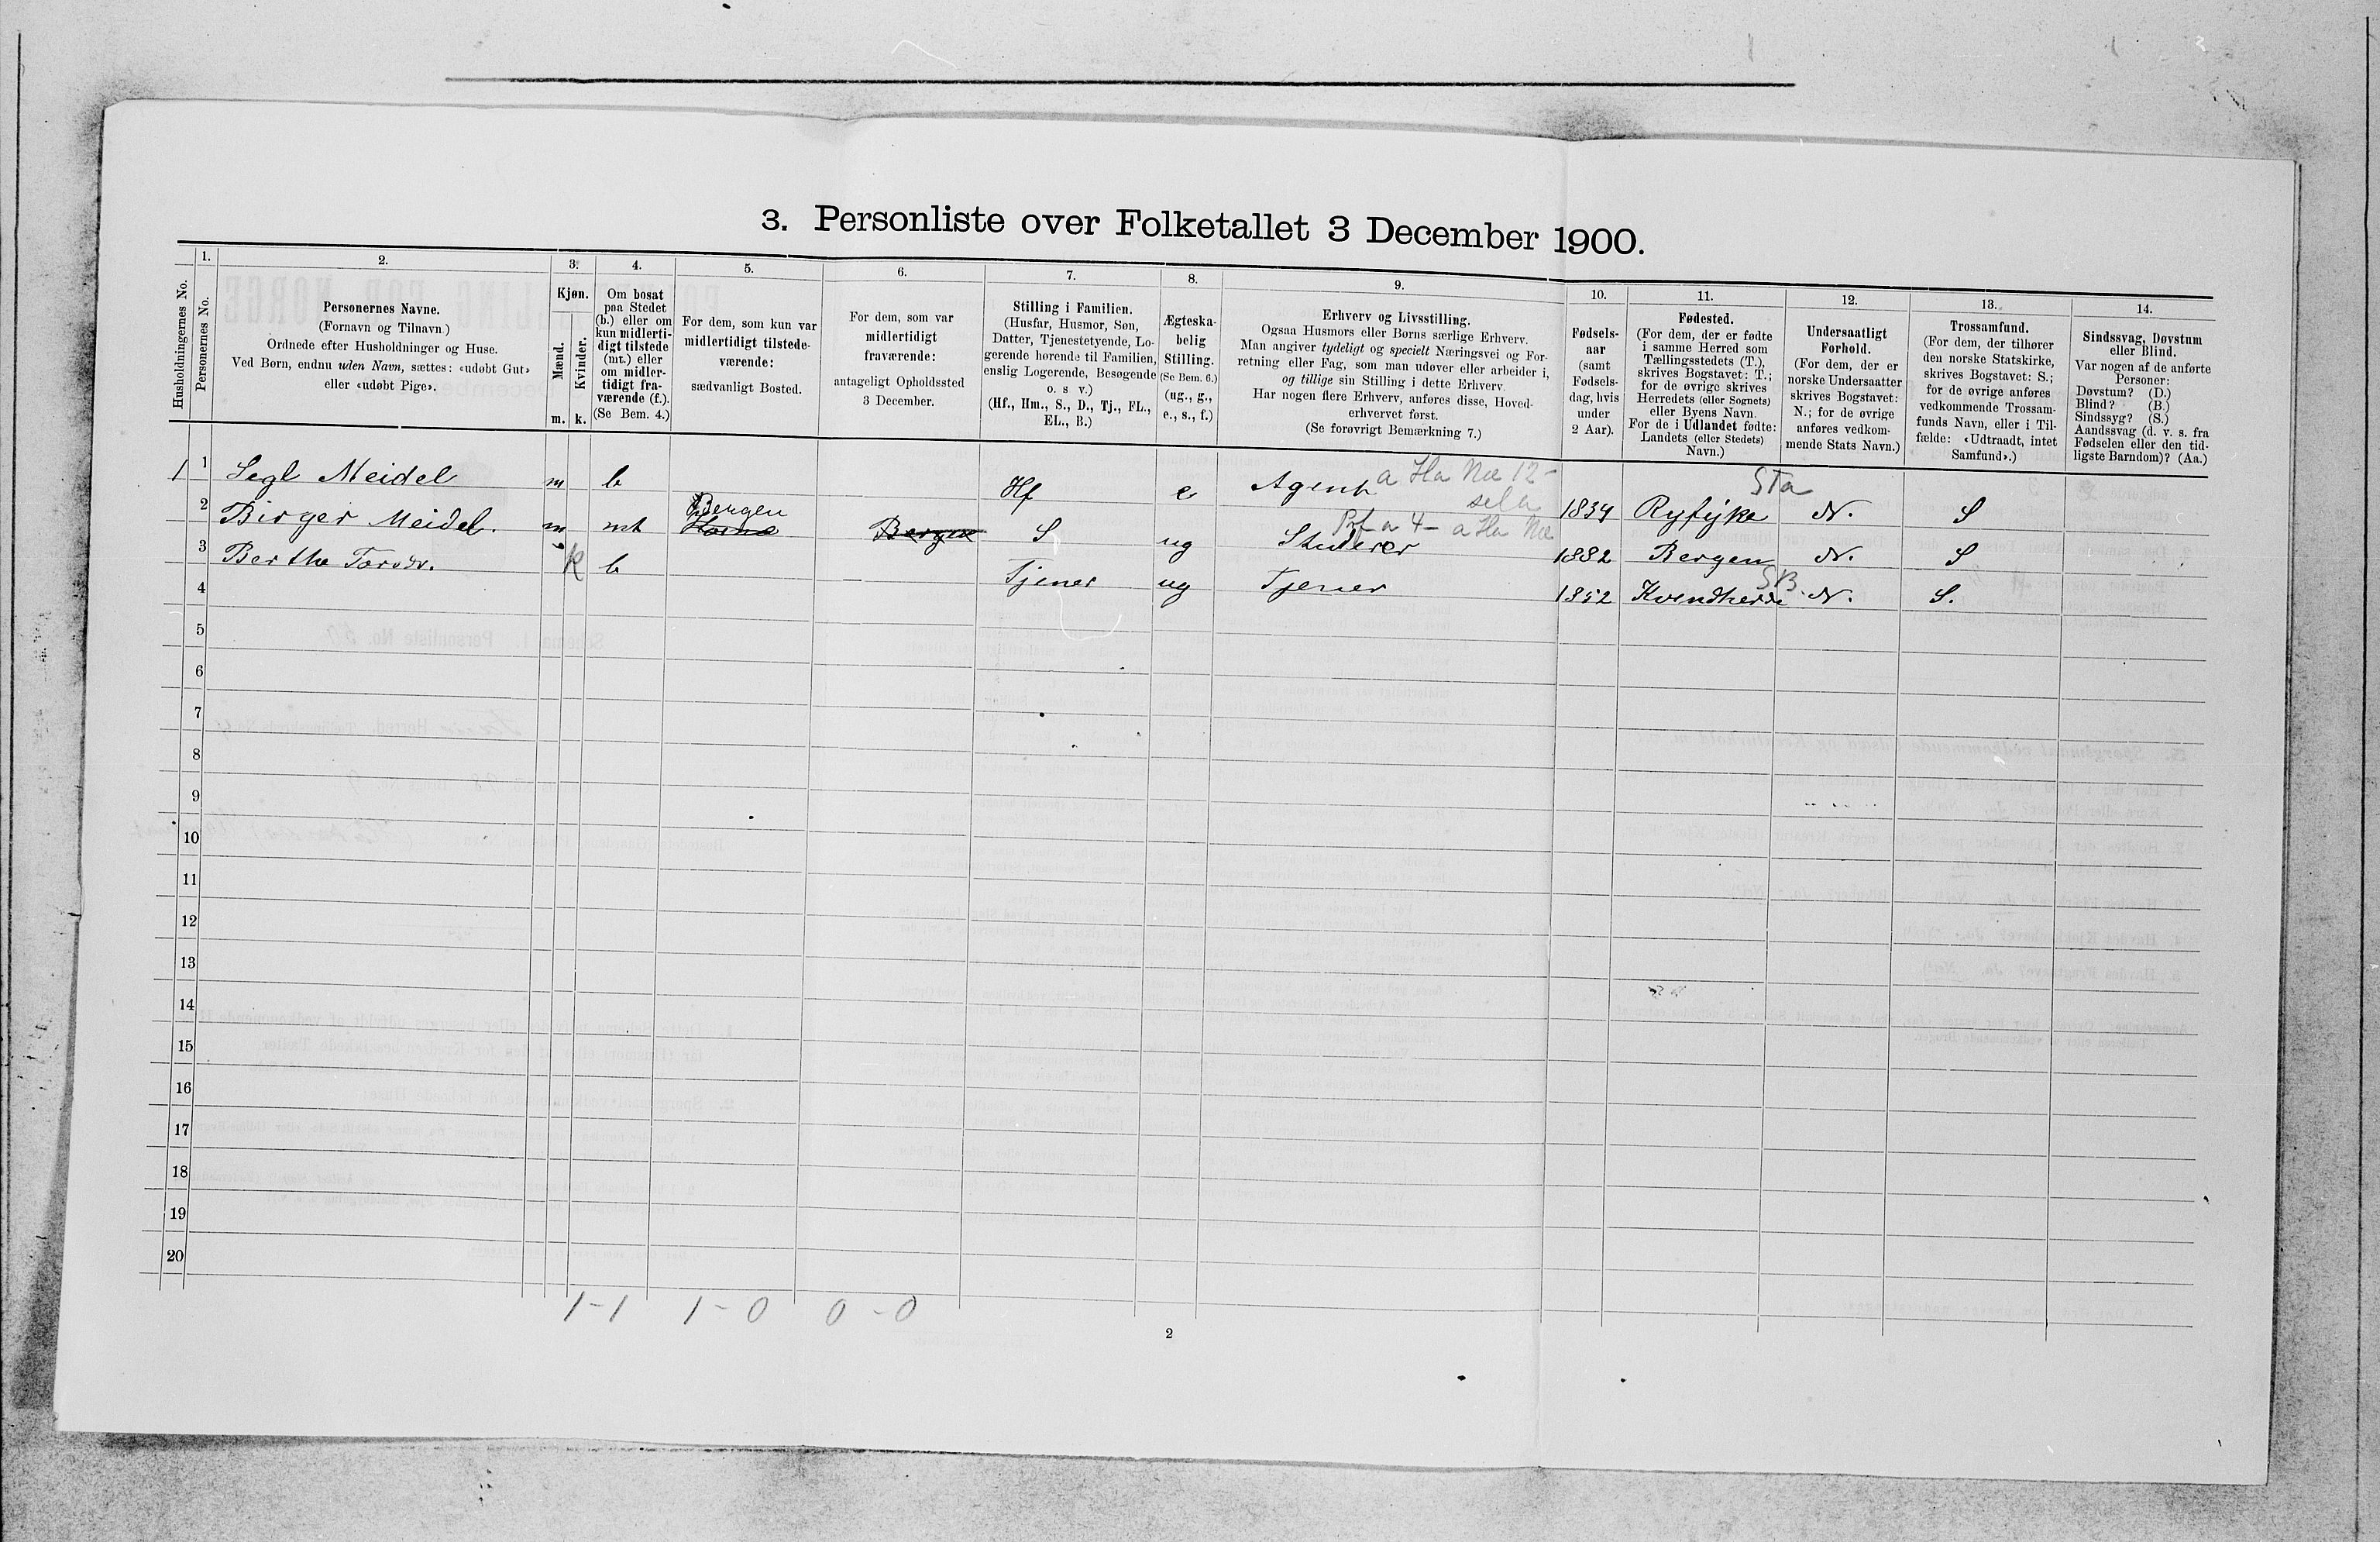 3. Personliste over Folketallet 3 December 1900.
1. 2. 3. 4. 5. 6. 7. 8. 9. 10. 11. 12. 13. 14.
Husholdningernes No.
Personernes No.
Personernes Navne.
(Fornavn og Tilnavn.)
Ordnede efter Husholdninger og Huse.
Ved Børn, endnu uden Navn, sættes: «udøbt Gut»
eller «udøbt Pige».
Kjøn.
Mænd.
Kvinder.
m. k.
Om bosat
paa Stedet
(b.) eller om
kun midlerti-
digt tilstede
(mt.) eller
om midler-
tidigt fra-
værende (f.).
(Se Bem. 4.)
For dem, som kun var
midlertidigt tilstede-
værende:
sædvanligt Bosted.
For dem, som var
midlertidigt
fraværende:
antageligt Opholdssted
3 December.
Stilling i Familien.
(Husfar, Husmor, Søn,
Datter, Tjenestetyende, Lo-
gerende hørende til Familien,
enslig Logerende, Besøgende
o. s v.)
(Hf., Hm., S., D., Tj., FL.,
EL., B.)
Ægteska-
belig
Stilling.
(Se Bem. 6.)
(ug., g.,
e., s., f.)
Erhverv og Livsstilling.
Ogsaa Husmors eller Børns særlige Erhverv.
Man angiver tydeligt og specielt Næringsvei og For-
retning eller Fag, som man udøver eller arbeider i,
og tillige sin Stilling i dette Erhverv.
Har nogen flere Erhverv, anføres disse, Hoved-
erhvervet først.
(Se forøvrigt Bemærkning 7.)
Fødsels-
aar
(samt
Fødsels-
dag, hvis
under
2 Aar).
Fødested.
(For dem, der er fødte
i samme Herred som
Tællingsstedets (T.),
skrives Bogstavet: T.;
for de øvrige skrives
Herredets (eller Sognets)
eller Byens Navn.
For de i Udlandet fødte:
Landets (eller Stedets)
Navn.)
Undersaatligt
Forhold.
(For dem, der er
norske Undersaatter
skrives Bogstavet:
N.; for de øvrige
anføres vedkom-
mende Stats Navn.)
Trossamfund.
(For dem, der tilhører
den norske Statskirke,
skrives Bogstavet: S.;
for de øvrige anføres
vedkommende Trossam-
funds Navn, eller i Til-
fælde: «Udtraadt, intet
Samfund».)
Sindssvag, Døvstum
eller Blind.
Var nogen af de anførte
Personer:
Døvstum? (D.)
Blind? (B.)
Sindssyg? (S.)
Aandssvag (d. v. s. fra
Fødselen eller den tid-
ligste Barndom)? (Aa.)
1 1 Segl Meidel m b Hf e Agent 1834 Ryfylke Sta N. S
2 Birger Meidel. m mt Bergen Bergen S ug Studerer 1882 Bergen N. S
3 Berthe k b Tjener ug Tjener 1852 SB. N. S.
4
5
6
7
8
9
10
11
12
13
14
15
16
17
18
19
20
1-1 1-0 0-0
2